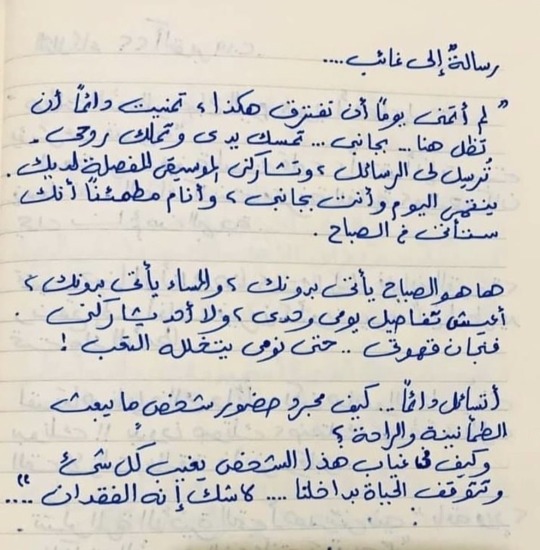 رسالةٌ إلى غائب ....
" لم أتمنى يوماً أن نفترق هكذا، تمنيت دائماً أن
تظل هنا ... بجانبي ... تمسك يدي وتملك روحي .
تُرسل لي الرسائل، وتشاركني الموسيقى المفضلة لديك .
ينتهي اليوم وأنت بجانبي، وأنام مطمئناً أنك
ستأتي في الصباح .
ها هو الصباح يأتي بدونك، والمساء يأتي بدونك،
أعيش تفاصيل يومي وحدي، ولا أحد يشاركني
فنجان قهوتي .. حتى نومي يتخلله التعب !
أتسائل دائماً ... كيف مجرد حضور شخص ما يبعث
الطمأنينة والراحة ؟
وكيف في غياب هذا الشخص يغيب كل شيء
وتتوقف الحياة بداخلنا .... لا شك إنه الفقدان ...."